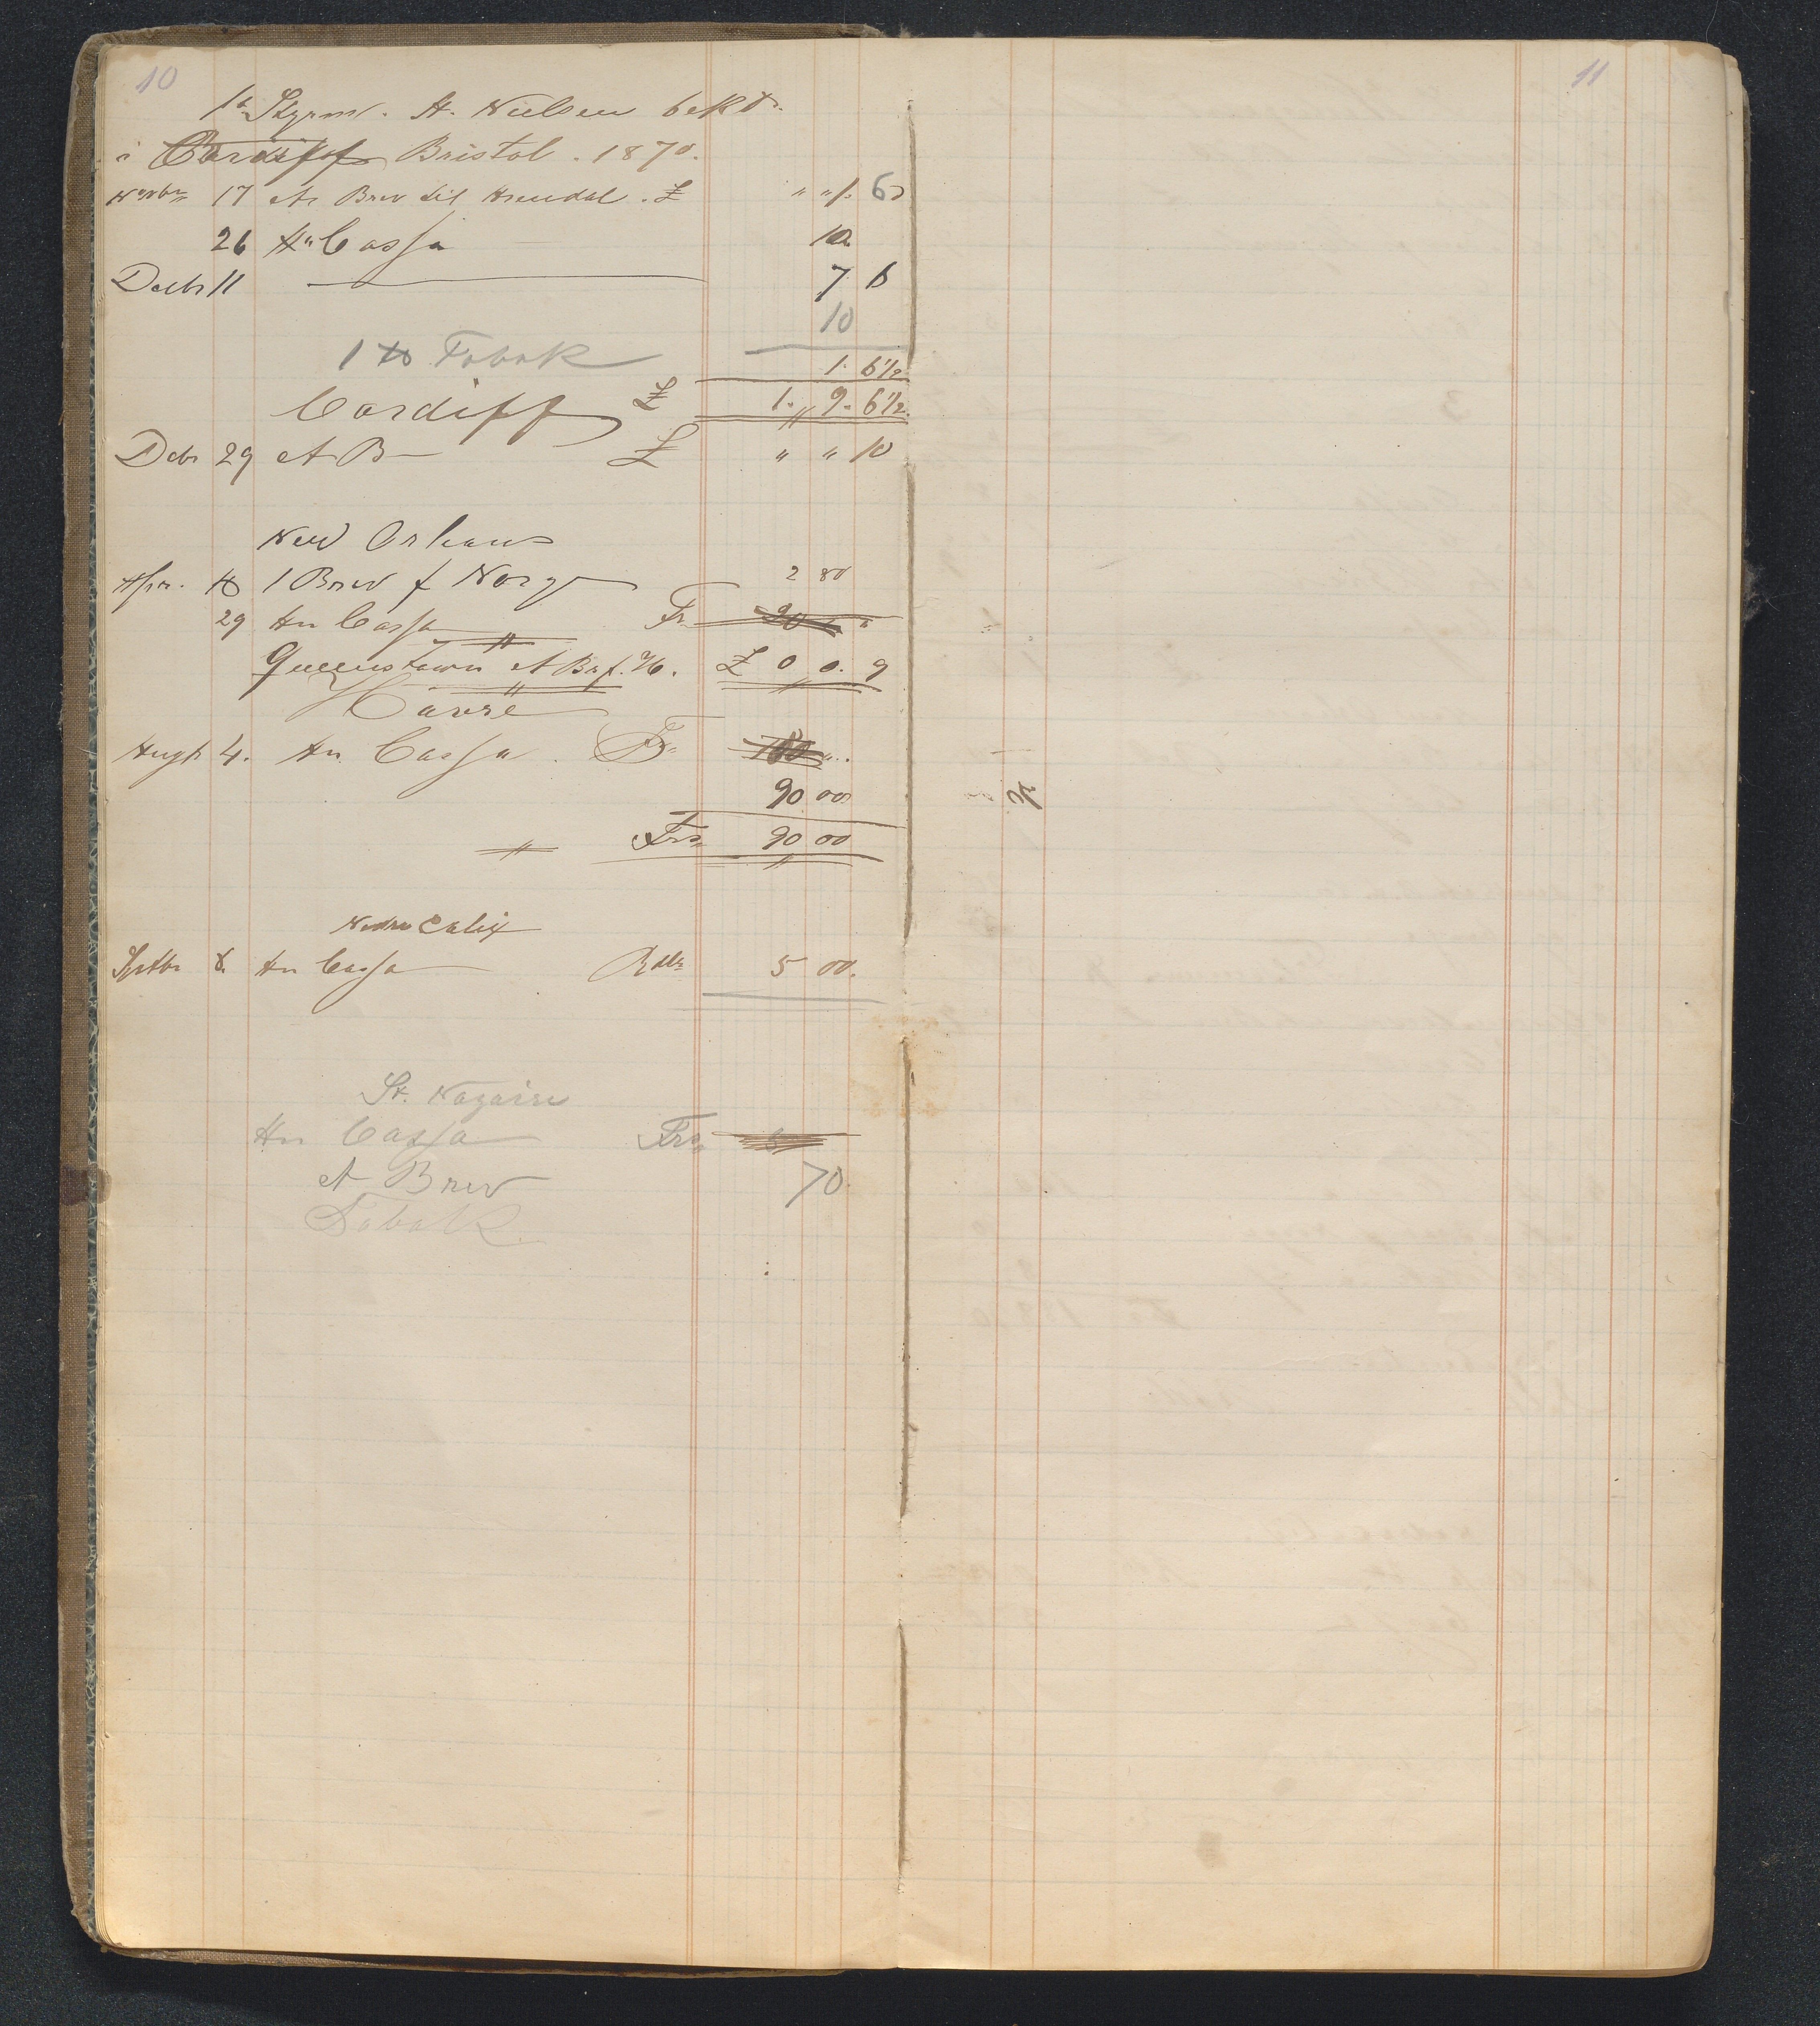 10
1ste Styrmd. A. Nielsen bekt.
i Cardiff Bristol. 1870.
Novbr 17 At Brev til Arendal. £ " " 1. 6
26 An Cassa 10
Decbr 11 7. 6
10
1 ℔ Tobak 1. 6 1/2
Cardiff £ 1. 9. 6 1/2.
Debr 29 At B £ " " 10
New Orleans
Apr. 1 Brev f Norge 2 80
29 An Cassa Fr 20 "
Queenstown At B £ 0 0. 9
Havre
Augst 4. An Cassa. Fr 100 "
90 00
Frs 90 00
Nedre Calix
Septbr 8. An Cassa Rdlr 5 00.
St. Nazaire
An Cassa Frs
At Brev 70.
Tobak.
11